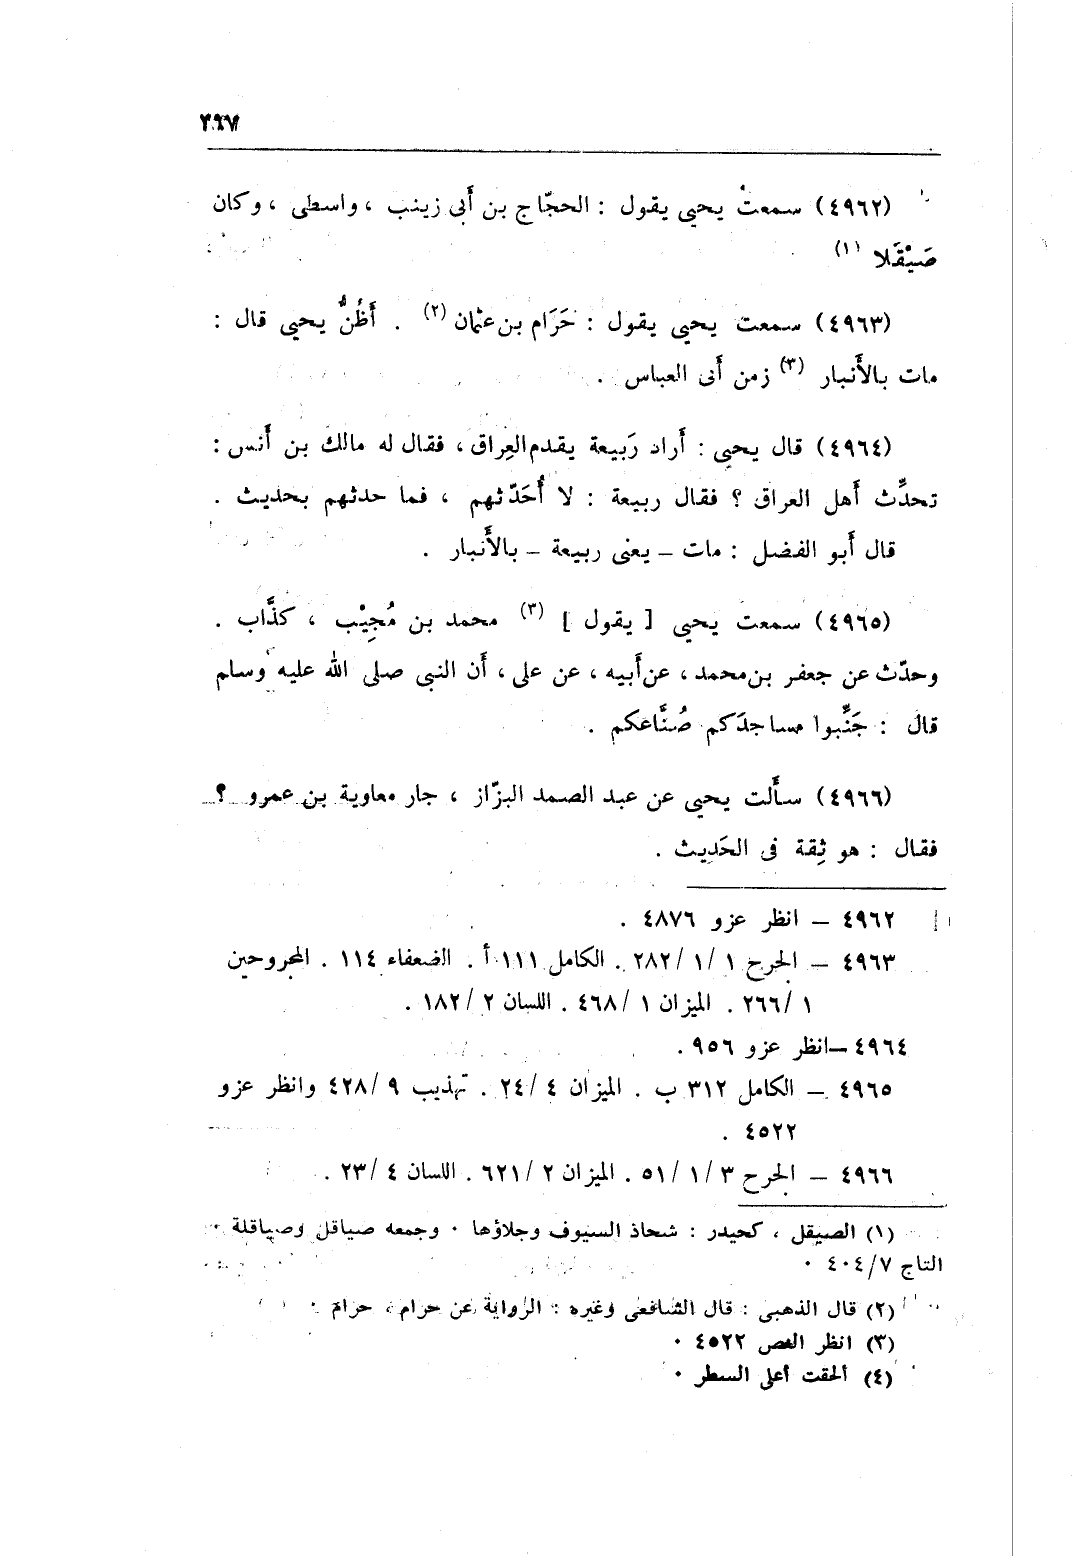 ٣٩٧
(٤٩٦٢) سمعتُ يحيى يقول : الحجّاج بن أَبى زينب ، واسطى ، وكان
صَيْقَلا (١)
(٤٩٦٣) سمعت يحيى يقول : حَرَام بن عثمان (٢) . أَظُنُّ يحيى قال :
مات بالأَنبار (٣) زمن أَبى العباس .
(٤٩٦٤) قال يحيى : أَراد رَبيعة يقدم العِراق ، فقال له مالك بن أَنس :
تحدِّث أَهل العراق ؟ فقال ربيعة : لا أُحَدّثهم ، فما حدثهم بحديث .
قال أَبو الفضل : مات – يعنى ربيعة – بالأَنبار .
(٤٩٦٥) سمعت يحيى [ يقول ] (٣) محمد بن مُجِيْب ، كذَّاب .
وحدّث عن جعفر بن محمد ، عن أَبيه ، عن على ، أَن النبى صلى الله عليه وسلم
قال : جَنِّبوا مساجدَكم صُنَّاعكم .
(٤٩٦٦) سأَلت يحيى عن عبد الصمد البزّاز ، جار معاوية بن عمرو ؟
فقال : هو ثِقة فى الحَديث .
٤٩٦٢ – انظر عزو ٤٨٧٦ .
٤٩٦٣ – الجرح ١ /١ /٢٨٢ . الكامل ١١١ أ . الضعفاء ١١٤ . المجروحين
١ /٢٦٦ . الميزان ١ /٤٦٨ . اللسان ٢ /١٨٢ .
٤٩٦٤ –انظر عزو ٩٥٦ .
٤٩٦٥ – الكامل ٣١٢ ب . الميزان ٤ /٢٤ . تهذيب ٩ /٤٢٨ وانظر عزو
٤٥٢٢ .
٤٩٦٦ – الجرح ٣ /١ /٥١ . الميزان ٢ /٦٢١ . اللسان ٤ /٢٣ .
(١) الصيقل ، كحيدر : شحاذ السيوف وجلاؤها . وجمعه صياقل وصياقلة .
التاج ٤٠٤/٧ .
(٢) قال الذهبى : قال الشافعى وغيره : الرواية عن حرام ، حرام .
(٣) انظر النص ٤٥٢٢ .
(٤) ألحقت أعلى السطر .